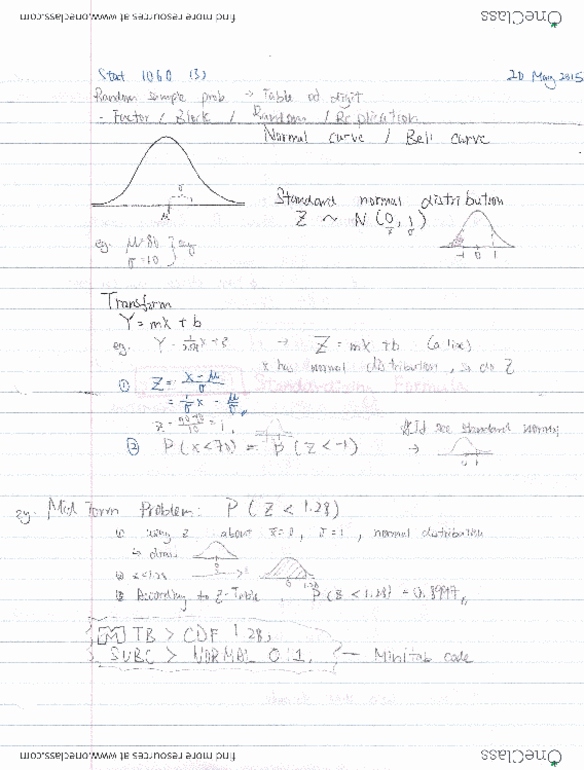 find more resources at www.oneclass.com
OneClass
Stat 1060 (3)
20 May 2015
Random sample prob → Table of digit
- Factor / Block / Random / Replication
Normal curve / Bell curve
σ
μ
Standard normal distribution
Z ~ N (0, 1)
-1 0 1
eg. μ=80
σ=10
Transform
Y = mx + b
eg. Y =
→ Z = mx + b (a line)
x has normal distribution, so do Z
① Z = x - μ / σ
= 1/σ x - μ/σ
Standardizing Formula
② P(x < 70) = P(Z < -1)
standard normal
→
0 1
eg. Mid Term Problem: P(Z < 1.28)
① using z about x̄=0, σ=1, normal distribution
↳ draw
0
② x < 1.28
0 1.28
③ According to Z-Table, P(Z < 1.28) = 0.8997
MTB > CDF 1.28;
SUBC > NORMAL 0 1. — Minitab code
find more resources at www.oneclass.com
OneClass